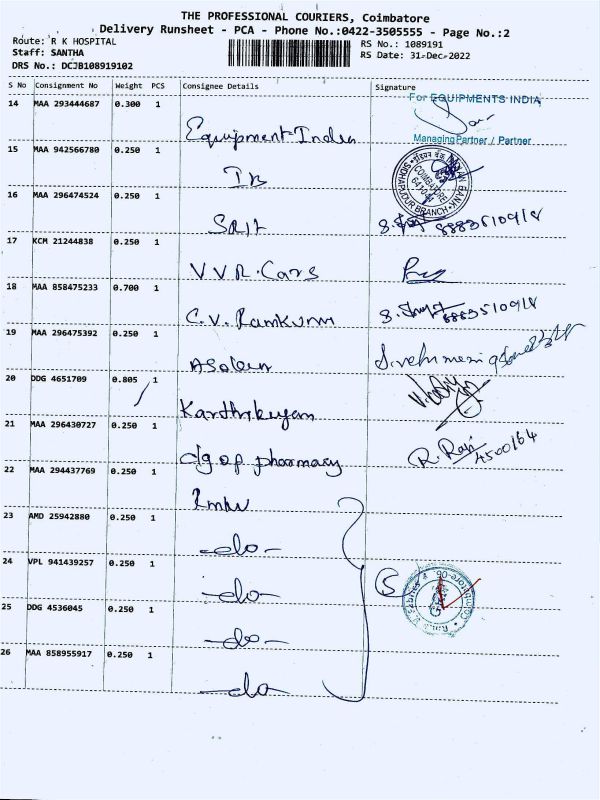 THE PROFESSIONAL COURIERS, Coimbatore
Delivery Runsheet - PCA - Phone No.:0422-3505555 - Page No.:2
Route: R K HOSPITAL
RS No.: 1089191
Staff: SANTHA
RS Date: 31-Dec-2022
DRS No.: DCJB108919102
S No Consignment No Weight PCS Consignee Details Signature
For EQUIPMENTS INDIA
14 MAA 293444687 0.300 1
Equipment India
Managing Partner / Partner
15 MAA 942566780 0.250 1
IB
COIMBATORE
SIDHAPUDUR BRANCH
16 MAA 296474524 0.250 1
SRIT
17 KCM 21244838 0.250 1
V V R. Cars
18 MAA 858475233 0.700 1
C.V. Ramkumar
19 MAA 296475392 0.250 1
20 DDG 4651709 0.805 1
Karthikeyan
21 MAA 296430727 0.250 1
R. Raji
4500164
c/g of pharmacy
22 MAA 294437769 0.250 1
23 AMD 25942880 0.250 1
-do-
24 VPL 941439257 0.250 1
-do-
25 DDG 4536045 0.250 1
-do-
26 MAA 858955917 0.250 1
-do